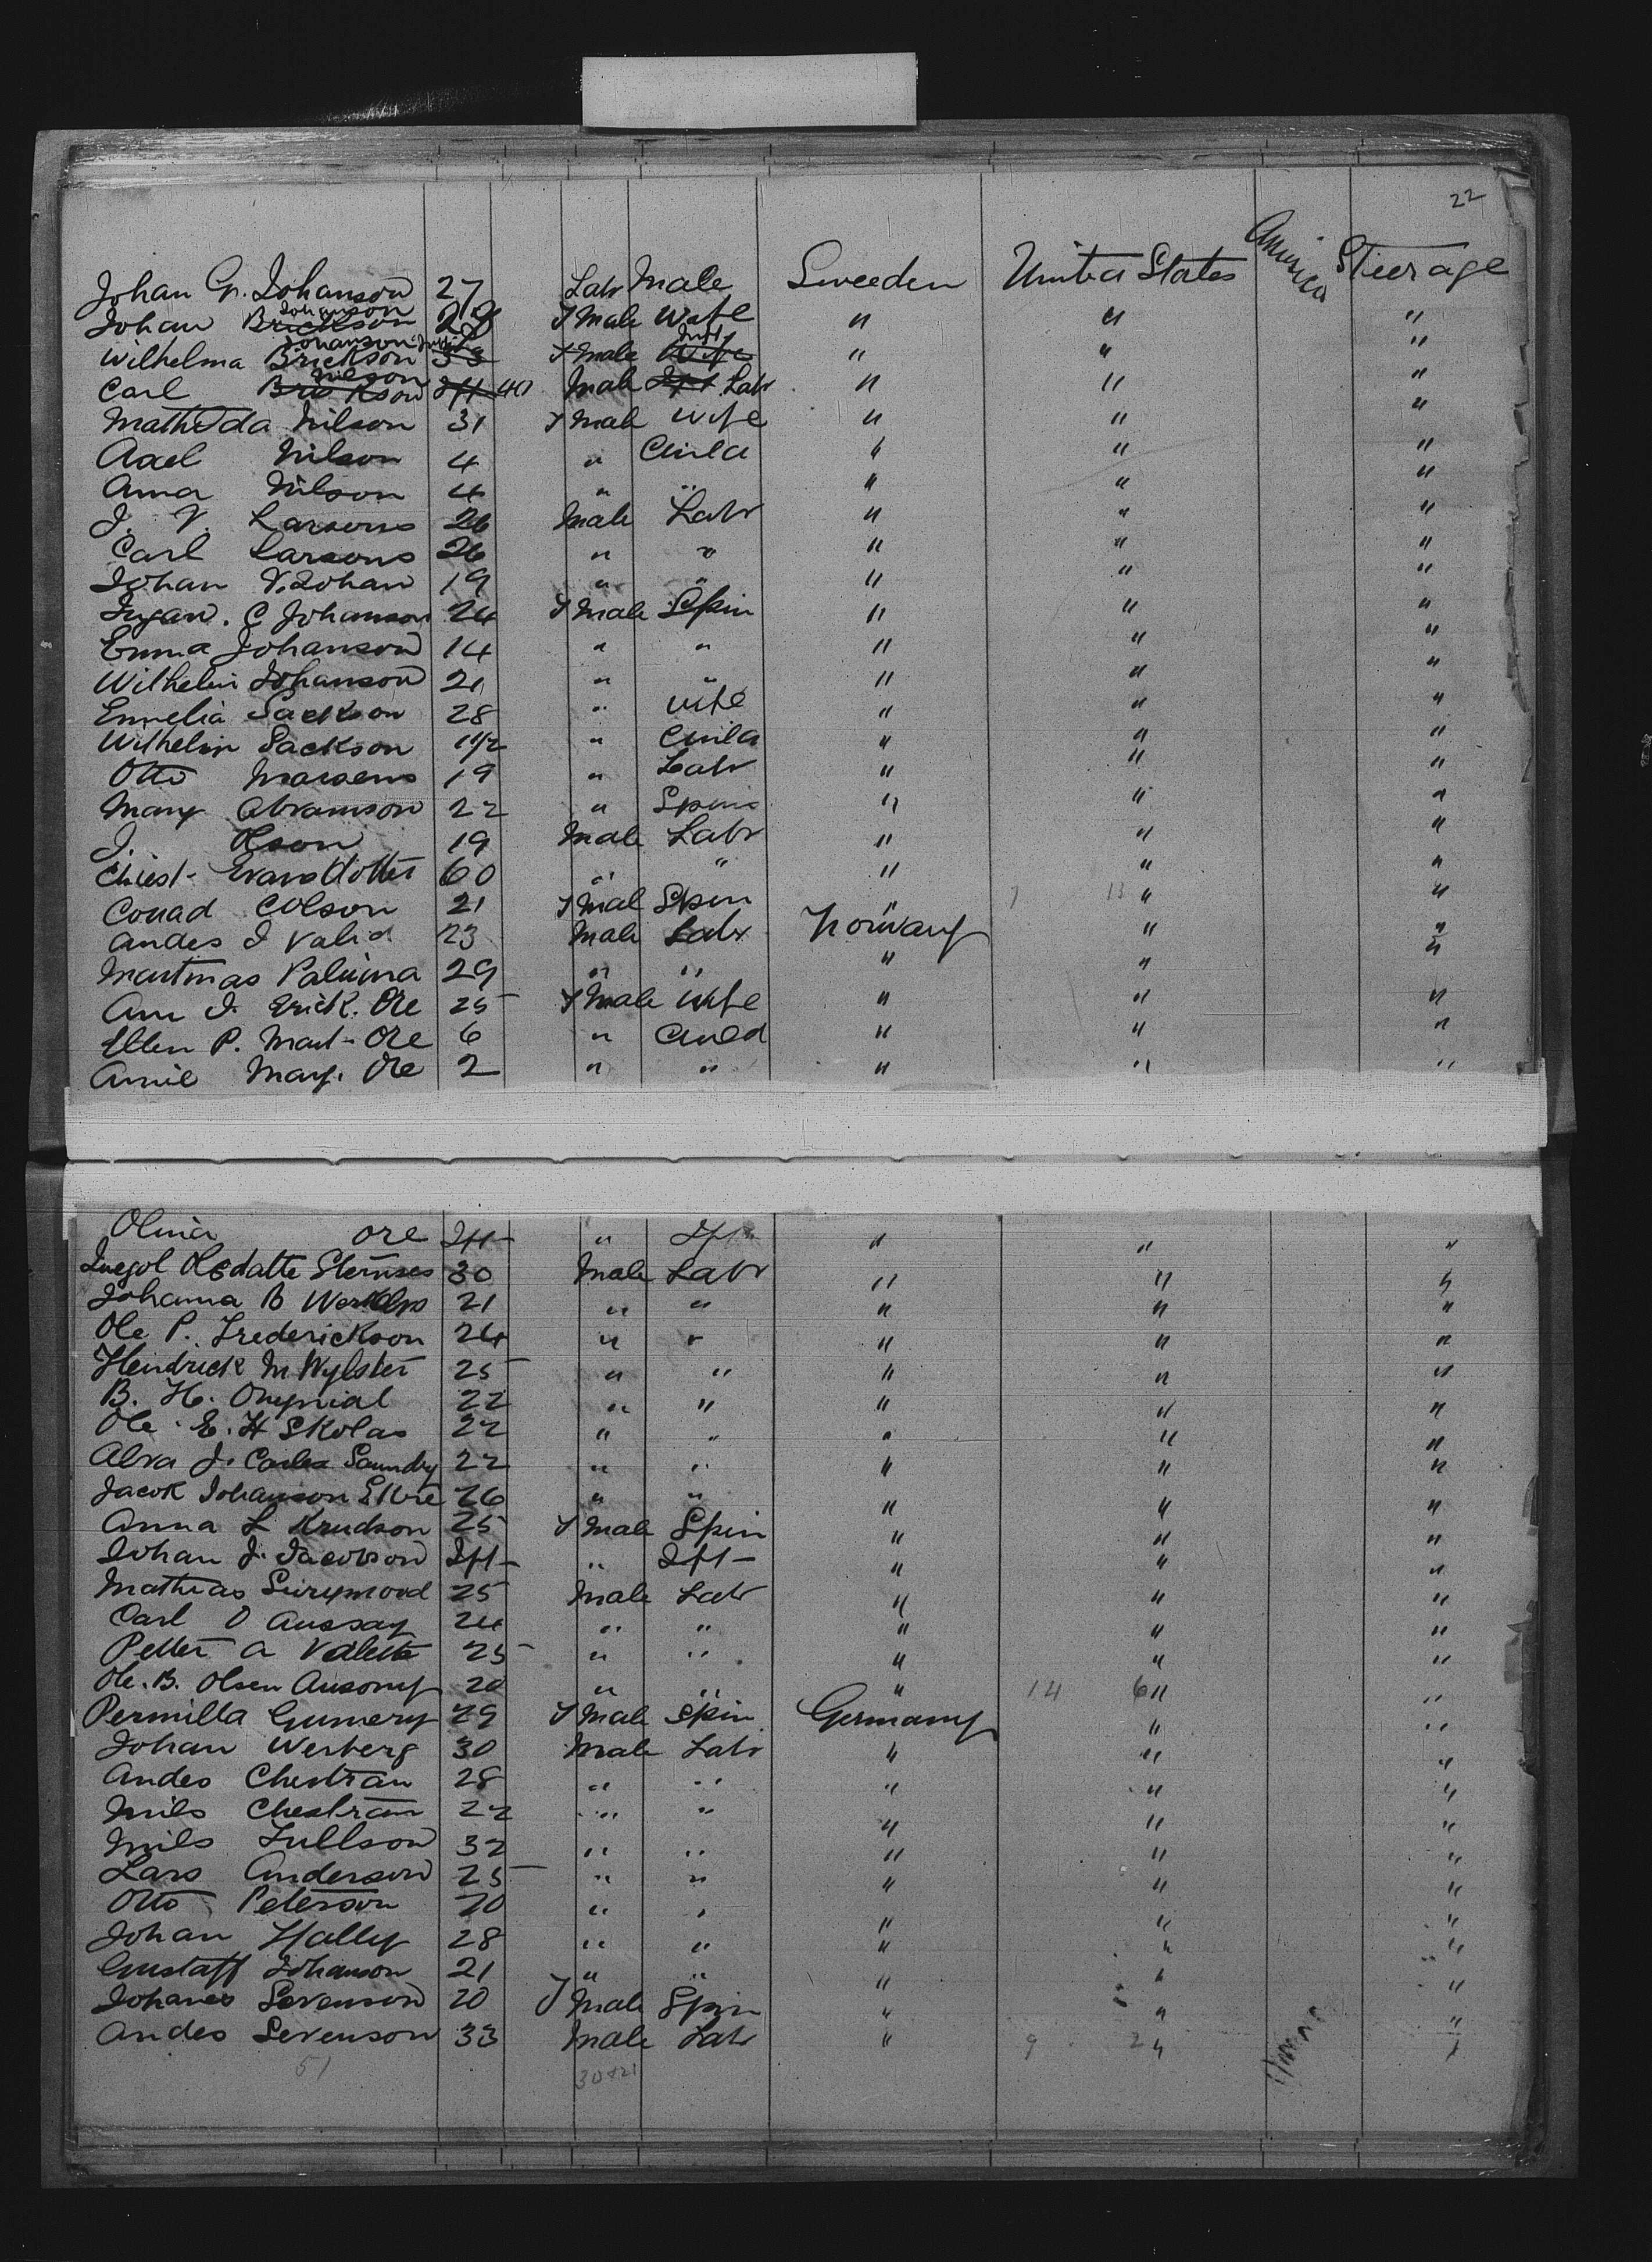 22
Johan G. Johanson 27 Labr Male Sweeden United States America Steerage
Johan Brickson Johanson 28 Fmale Wife " " "
Wilhelma Brickson Johanson Inft 33 Fmale Wife Inft " " "
Carl Brickson Nilson Inft 40 Male Inft Labr " " "
Mathilda Nilson 31 Fmale Wife " " "
Axel Nilson 4 " Child " " "
Anna Nilson 4 " " " " "
J. V. Larsons 26 Male Labr " " "
Carl Larsons 26 " " " " "
Johan V. Johan 19 " " " " "
C Johanson 24 Fmale Spin " " "
Emma Johanson 14 " " " " "
Wilhelm Johanson 21 " " " " "
Emelia Sackson 28 " Wife " " "
Wilhelm Sackson 1 1/2 " Child " " "
Otto 19 " Labr " " "
Mary Abramson 22 " Spin " " "
J. Olson 19 Male Labr " " "
Christ Evansdotter 60 " " " " "
Conad Colson 21 Fmal Spin " 7 13 " "
Andes J Valid 23 Male Labr Norway " "
Martinas Paluina 29 " " " " "
Ann J. Erick. Ore 25 Fmale Wife " " "
Ellen P. Mart- Ore 6 " Child " " "
Annie May. Ore 2 " " " " "
Olivia Ore Inft " Inft " " "
Olsdatte 30 Male Labr " " "
Johanna B 21 " " " " "
Ole P. Frederickson 24 " " " " "
Hendrick M Wylster 25 " " " " "
B. H. 22 " " " " "
Ole E. H Skolas 22 " " " " "
Alva J. 22 " " " " "
Jacok Johanson Skrie 26 " " " " "
Anna L Knudson 25 Fmale Spin " " "
Johan J. Jacobson Inft " Inft " " "
Mathias 25 Male Labr " " "
Carl O Aussay 24 " " " " "
Petter A 25 " " " " "
Ole. B. Olsen Ausony 20 " " " 14 6 " "
Permilla Gumery 29 Fmale Spin Germany " "
Johan Werberg 30 Male Labr " " "
Andes Chestran 28 " " " " "
Nils Chestran 22 " " " " "
Nils Tullson 32 " " " " "
Lars Anderson 25 " " " " "
Otto Peterson 20 " " " " "
Johan Hally 28 " " " " "
Gustaff Johanson 21 " " " " "
Johanes Sevenson 20 Fmale Spin " " "
Andes Sevenson 33 Male Labr " 9 2 " "
51 30+21